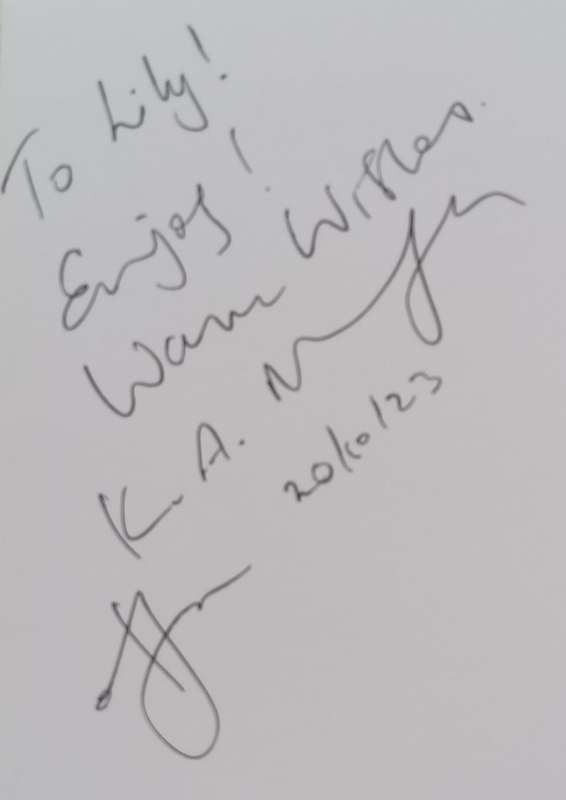 To Lily!
Enjoy!
Warm Wishes.
K. A.
20/10/23